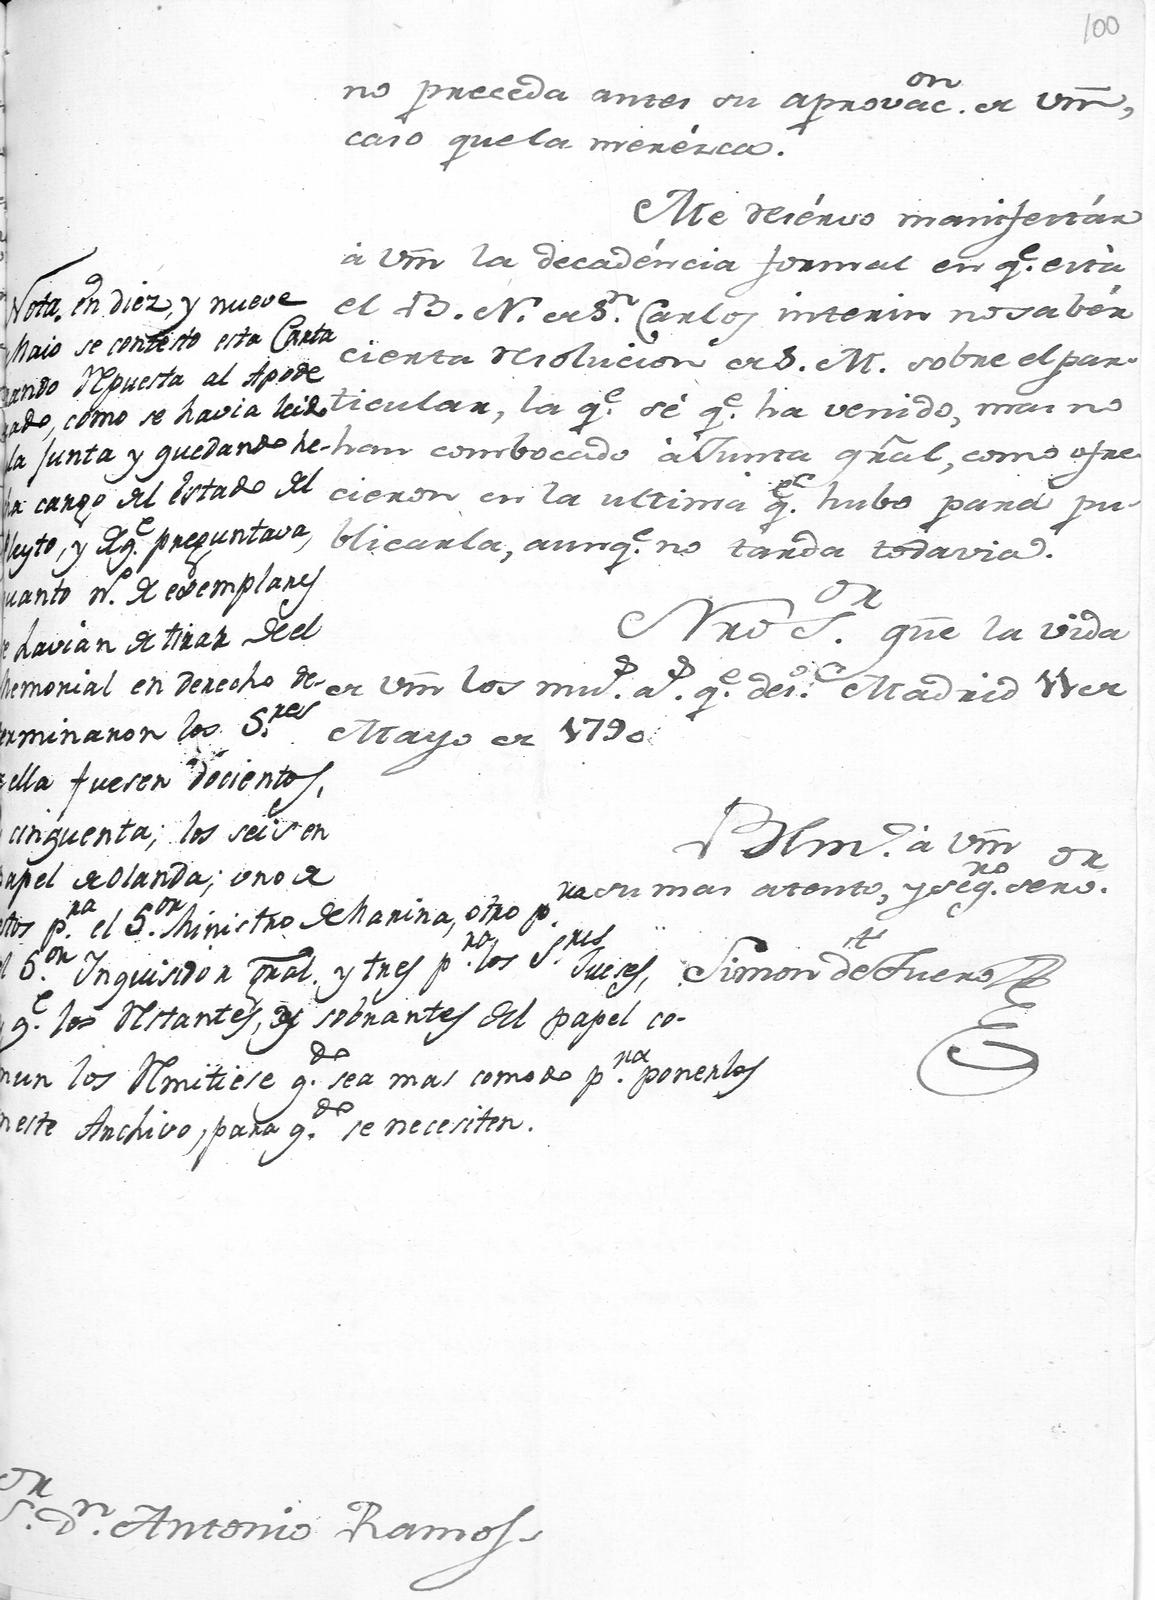 100
no preceda antes su aprovac.on de Vm̃,
caso que la merézca.
Me resérvo manifestár
à Vm̃ la decadéncia formal en q.e està
el B. N. de S.n Carlos interin no sabér
cierta resolucion de S. M. sobre el par-
ticular, la q.e sé q.e ha venido, mas no
han combocado à Junta gr̃al, como ofre-
cieron en la ultima q.e hubo para pu-
blicarla, aunq.e no tarda todavia.
Nro S.or gue la vida
de Vm̃ los mu.s a.s q.e des.o Madrid 11 de
Mayo de 1790
BLm.o à Vm̃
su mas atento, y seg.ro serv.or
Simon de Fuero
Nota. en diez, y nueve
Maio se contestó esta Carta
dando respuesta al Apode
rado, como se havia leido
la Junta y quedando he-
ha cargo del Estado del
Pleyto, y de q.e preguntava,
quanto n.o de exemplares
se havian de tirar de el
Memorial en derecho de-
terminaron los S.res
de ella fuesen docientos,
cinquenta; los seis en
papel de Olanda; uno de
estos p.ra el S.or Ministro de Marina, otro p.ra
el S.or Inquisidor gral. y tres p.ra los S.res Jueses,
y q.e los restantes, y sobrantes del papel co-
mun los remitiese q.do sea mas comodo p.ra ponerlos
en este Archivo, para q.do se necesiten.
S.or D.n Antonio Ramos.